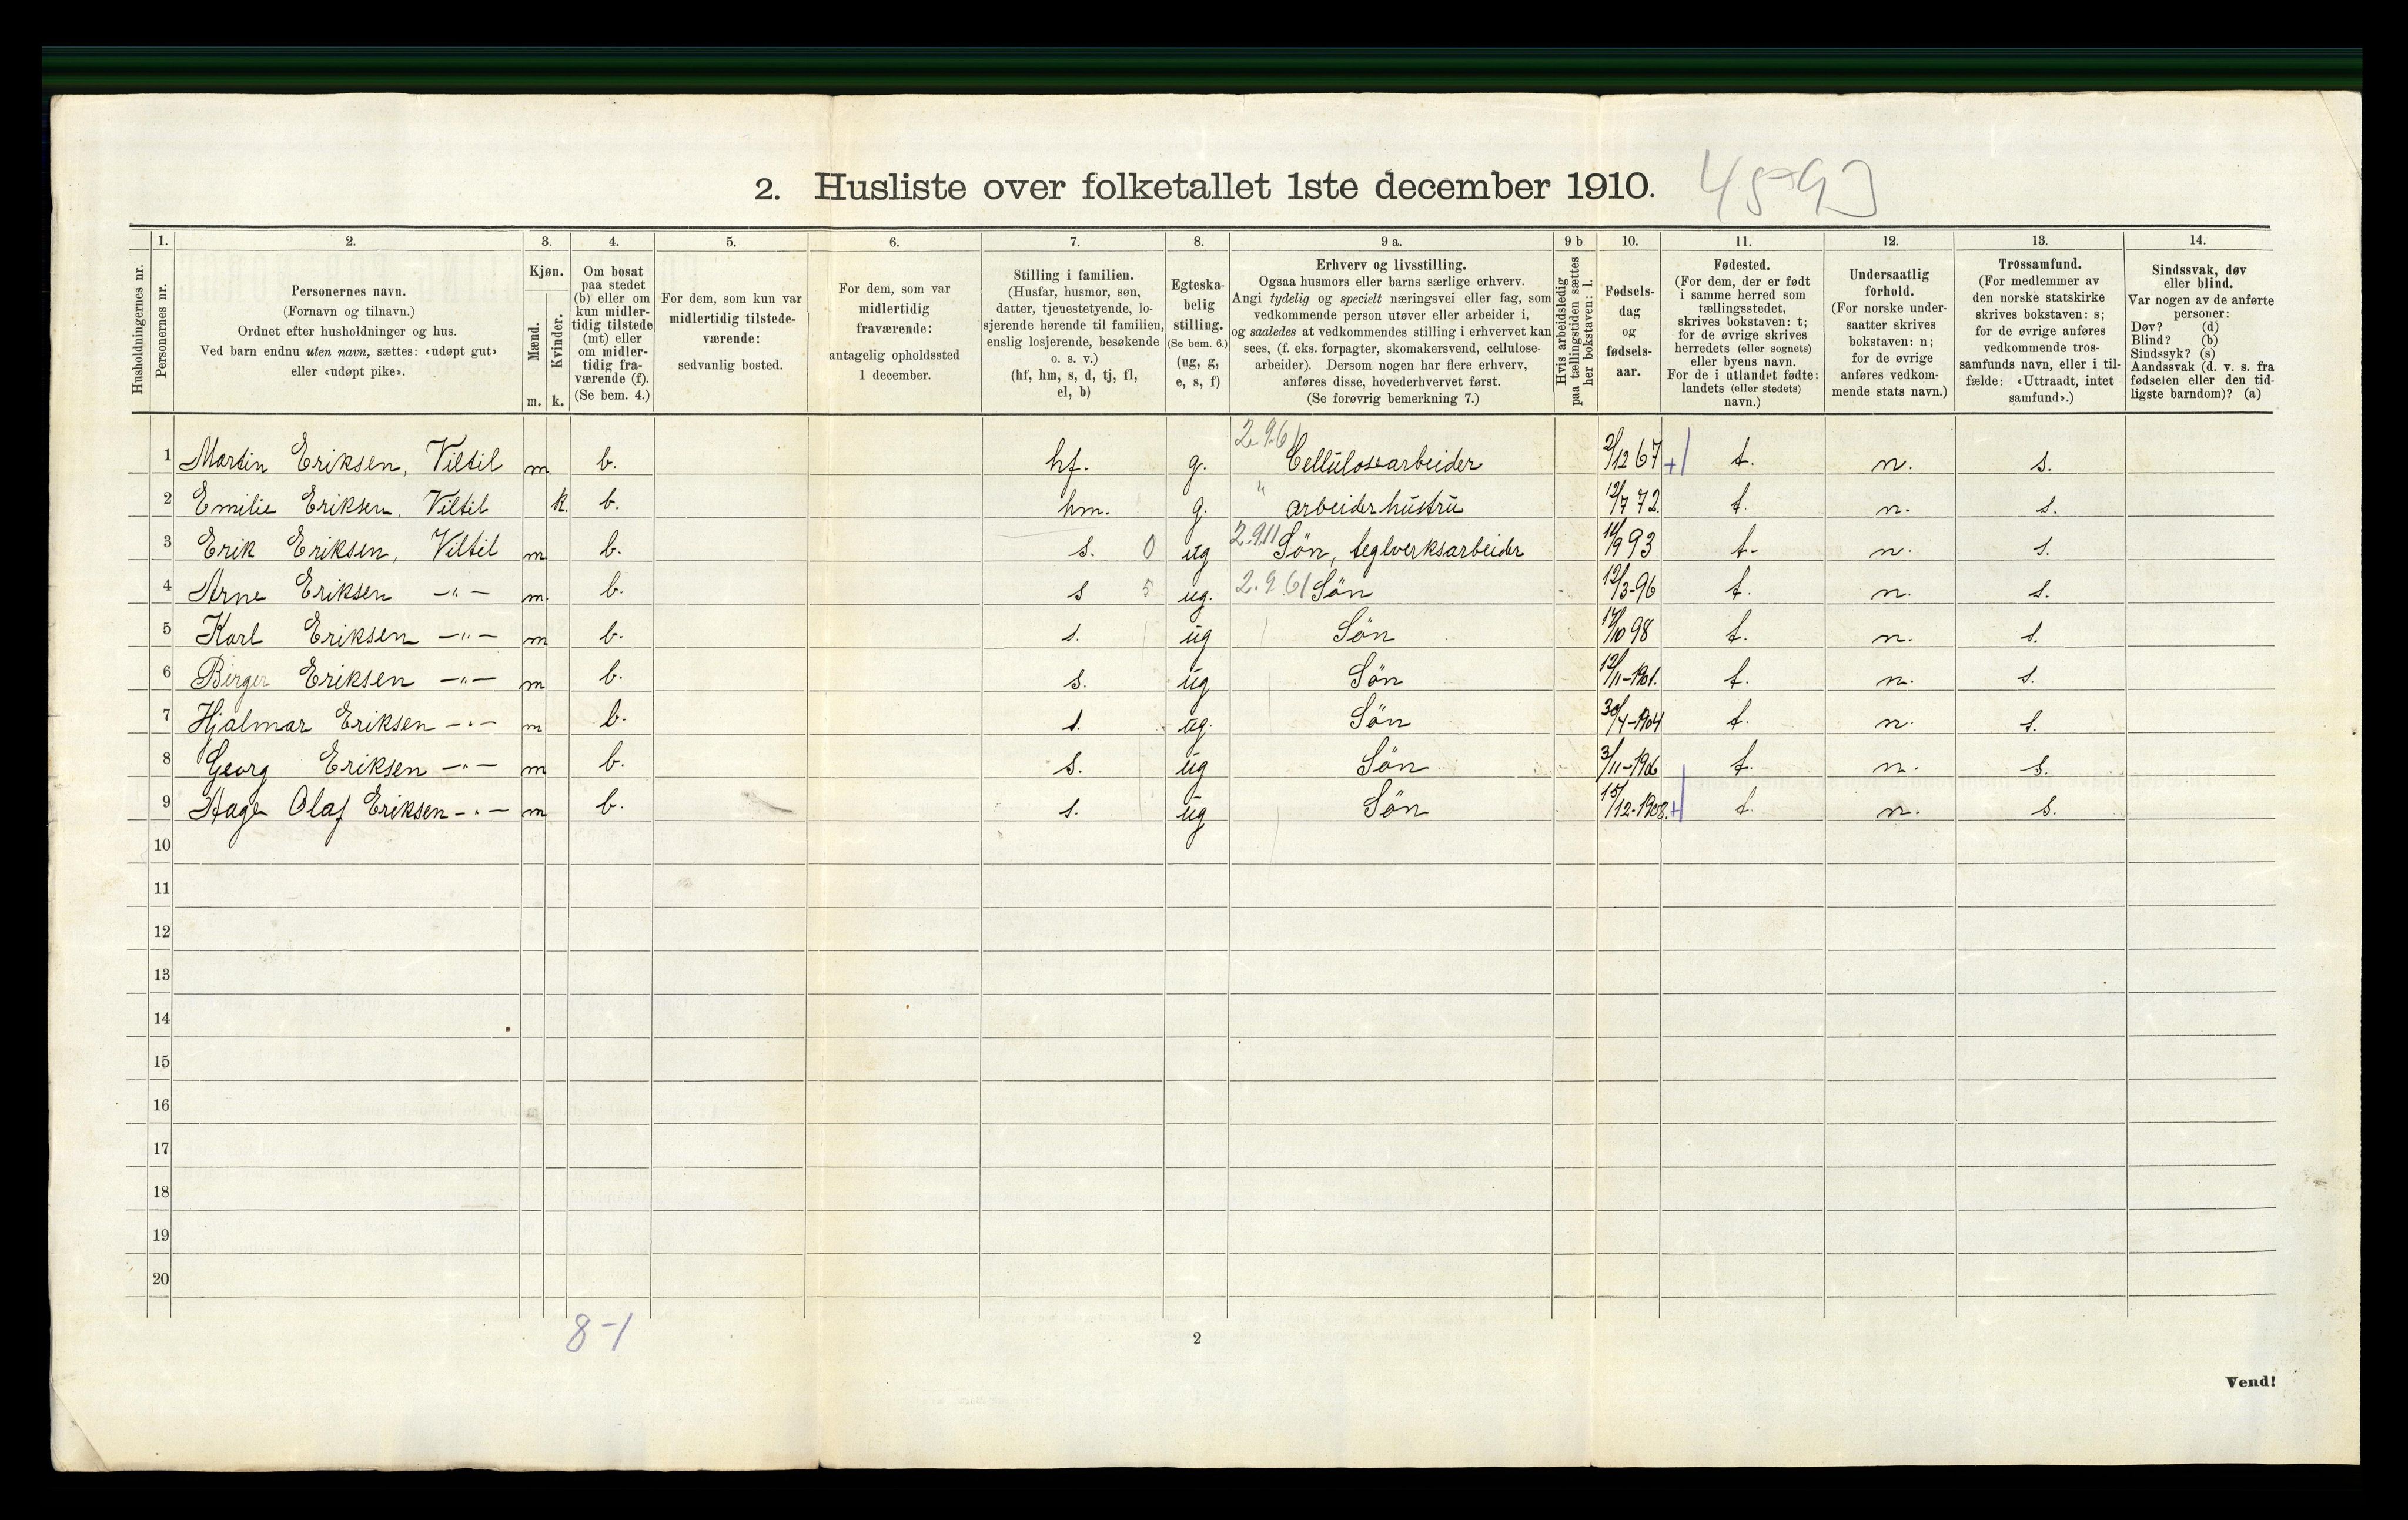 2. Husliste over folketallet 1ste december 1910. 45-93
Husholdningernes nr.
1. Personernes nr.
2. Personernes navn.
(Fornavn og tilnavn.)
Ordnet efter husholdninger og hus.
Ved barn endnu uten navn, sættes: «udøpt gut»
eller «udøpt pike».
3. Kjøn.
Mænd. m.
Kvinder. k.
4. Om bosat
paa stedet
(b) eller om
kun midler-
tidig tilstede
(mt) eller
om midler-
tidig fra-
værende (f).
(Se bem. 4.)
5. For dem, som kun var
midlertidig tilstede-
værende:
sedvanlig bosted.
6. For dem, som var
midlertidig
fraværende:
antagelig opholdssted
1 december.
7. Stilling i familien.
(Husfar, husmor, søn,
datter, tjenestetyende, lo-
sjerende hørende til familien,
enslig losjerende, besøkende
o. s. v.)
(hf, hm, s, d, tj, fl,
el, b)
8. Egteska-
belig
stilling.
(Se bem. 6.)
(ug, g,
e, s, f)
9 a. Erhverv og livsstilling.
Ogsaa husmors eller barns særlige erhverv.
Angi tydelig og specielt næringsvei eller fag, som
vedkommende person utøver eller arbeider i,
og saaledes at vedkommendes stilling i erhvervet kan
sees, (f. eks. forpagter, skomakersvend, cellulose-
arbeider). Dersom nogen har flere erhverv,
anføres disse, hovederhvervet først.
(Se forøvrig bemerkning 7.)
9 b Hvis arbeidsledig
paa tællingstiden sættes
her bokstaven: l.
10. Fødsels-
dag
og
fødsels-
aar.
11. Fødested.
(For dem, der er født
i samme herred som
tællingsstedet,
skrives bokstaven: t;
for de øvrige skrives
herredets (eller sognets)
eller byens navn.
For de i utlandet fødte:
landets (eller stedets)
navn.)
12. Undersaatlig
forhold.
(For norske under-
saatter skrives
bokstaven: n;
for de øvrige
anføres vedkom-
mende stats navn.)
13. Trossamfund.
(For medlemmer av
den norske statskirke
skrives bokstaven: s;
for de øvrige anføres
vedkommende tros-
samfunds navn, eller i til-
fælde: «Uttraadt, intet
samfund».)
14. Sindssvak, døv
eller blind.
Var nogen av de anførte
personer:
Døv? (d)
Blind? (b)
Sindssyk? (s)
Aandssvak (d. v. s. fra
fødselen eller den tid-
ligste barndom)? (a)
2.9.61
1 Martin Eriksen, Viltil m. b. hf. g. Cellulosearbeider 2/12 67 + t. n. s.
2 Emilie Eriksen, Viltil k. b. hm. g. " arbeiderhustru 12/7 72. t. n. s.
3 Erik Eriksen, Viltil m b. s. 0 ug 2.9.11 Sön, teglverksarbeider 14/9 93 t. n. s.
4 Arne Eriksen -"- m. b. s 5 ug. 2.9.61 Sön 12/3-96 t. n. s.
5 Karl Eriksen -"- m b. s. ug Sön 14/10 98 t. n. s.
6 Birger Eriksen -"- m b. s. ug Sön 12/11-1901. t. n. s.
7 Hjalmar Eriksen -"- m b. s. ug. Sön 30/4-1904 t. n. s.
8 Georg Eriksen -"- m b. s. ug Sön 3/11-1906 t. n. s.
9 Aage Olaf Eriksen -"- m b. s. ug Sön 15/12-1908. + t. n. s.
10
11
12
13
14
15
16
17
18
19
20
8-1
2
Vend!